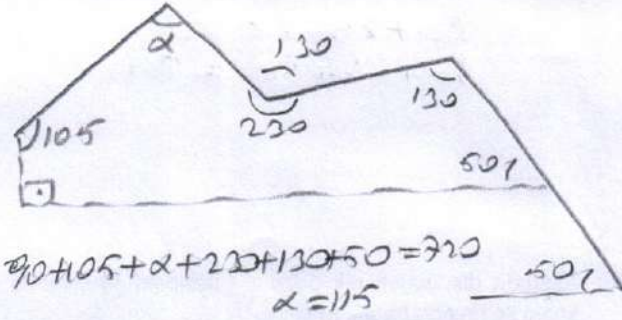 α
130
105
230
130
50
90+105+α+230+130+50=720
α=115
50